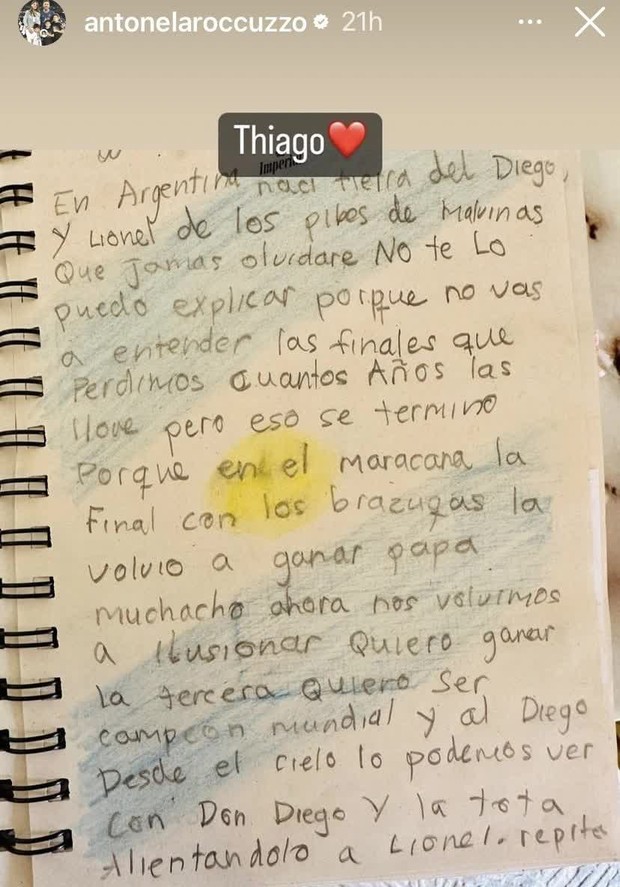 antonelaroccuzzo 21h
Thiago❤️
En Argentina naci tierra del Diego,
y Lionel de los pibes de Malvinas
Que Jamas olvidare NO te Lo
puedo explicar porque no vas
a entender las finales que
Perdimos cuantos Años las
llove pero eso se termino
Porque en el maracana la
Final con los brazucas la
volvio a ganar papa
muchacho ahora nos volvimos
a ilusionar Quiero ganar
la tercera Quiero Ser
campeon mundial y al Diego
Desde el cielo lo podemos ver
con Don Diego y la tota
Alientandolo a Lionel. repite